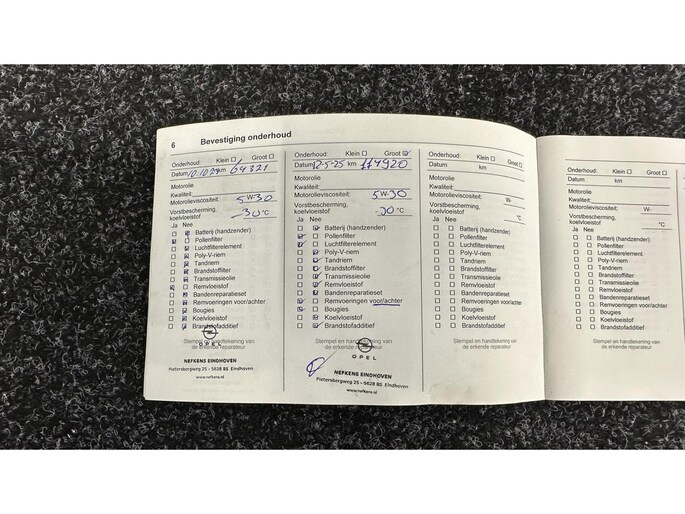 6 Bevestiging onderhoud
Onderhoud: Klein Groot
Datum 12.10.24 km 64321
Motorolie
Kwaliteit:
Motorolieviscositeit: 5 W-30
Vorstbescherming,
koelvloeistof -30 °C
Ja Nee
Batterij (handzender)
Pollenfilter
Luchtfilterelement
Poly-V-riem
Tandriem
Brandstoffilter
Transmissieolie
Remvloeistof
Bandenreparatieset
Remvoeringen voor/achter
Bougies
Koelvloeistof
Brandstofadditief
Stempel en handtekening van
de erkende reparateur
OPEL
NEFKENS EINDHOVEN
Pietersbergweg 25 - 5628 BS Eindhoven
www.nefkens.nl
Onderhoud: Klein Groot
Datum 12-5-25 km 117920
Motorolie
Kwaliteit:
Motorolieviscositeit: 5 W-30
Vorstbescherming,
koelvloeistof -30 °C
Ja Nee
Batterij (handzender)
Pollenfilter
Luchtfilterelement
Poly-V-riem
Tandriem
Brandstoffilter
Transmissieolie
Remvloeistof
Bandenreparatieset
Remvoeringen voor/achter
Bougies
Koelvloeistof
Brandstofadditief
Stempel en handtekening van
de erkende reparateur
OPEL
NEFKENS EINDHOVEN
Pietersbergweg 25 - 5628 BS Eindhoven
www.nefkens.nl
Onderhoud: Klein Groot
Datum km
Motorolie
Kwaliteit:
Motorolieviscositeit: W-
Vorstbescherming,
koelvloeistof °C
Ja Nee
Batterij (handzender)
Pollenfilter
Luchtfilterelement
Poly-V-riem
Tandriem
Brandstoffilter
Transmissieolie
Remvloeistof
Bandenreparatieset
Remvoeringen voor/achter
Bougies
Koelvloeistof
Brandstofadditief
Stempel en handtekening van
de erkende reparateur
Onderhoud: Klein Groot
Datum km
Motorolie
Kwaliteit:
Motorolieviscositeit: W-
Vorstbescherming,
koelvloeistof °C
Ja Nee
Batterij (handzender)
Pollenfilter
Luchtfilterelement
Poly-V-riem
Tandriem
Brandstoffilter
Transmissieolie
Remvloeistof
Bandenreparatieset
Remvoeringen voor/achter
Bougies
Koelvloeistof
Brandstofadditief
Stempel en handtekening van
de erkende reparateur